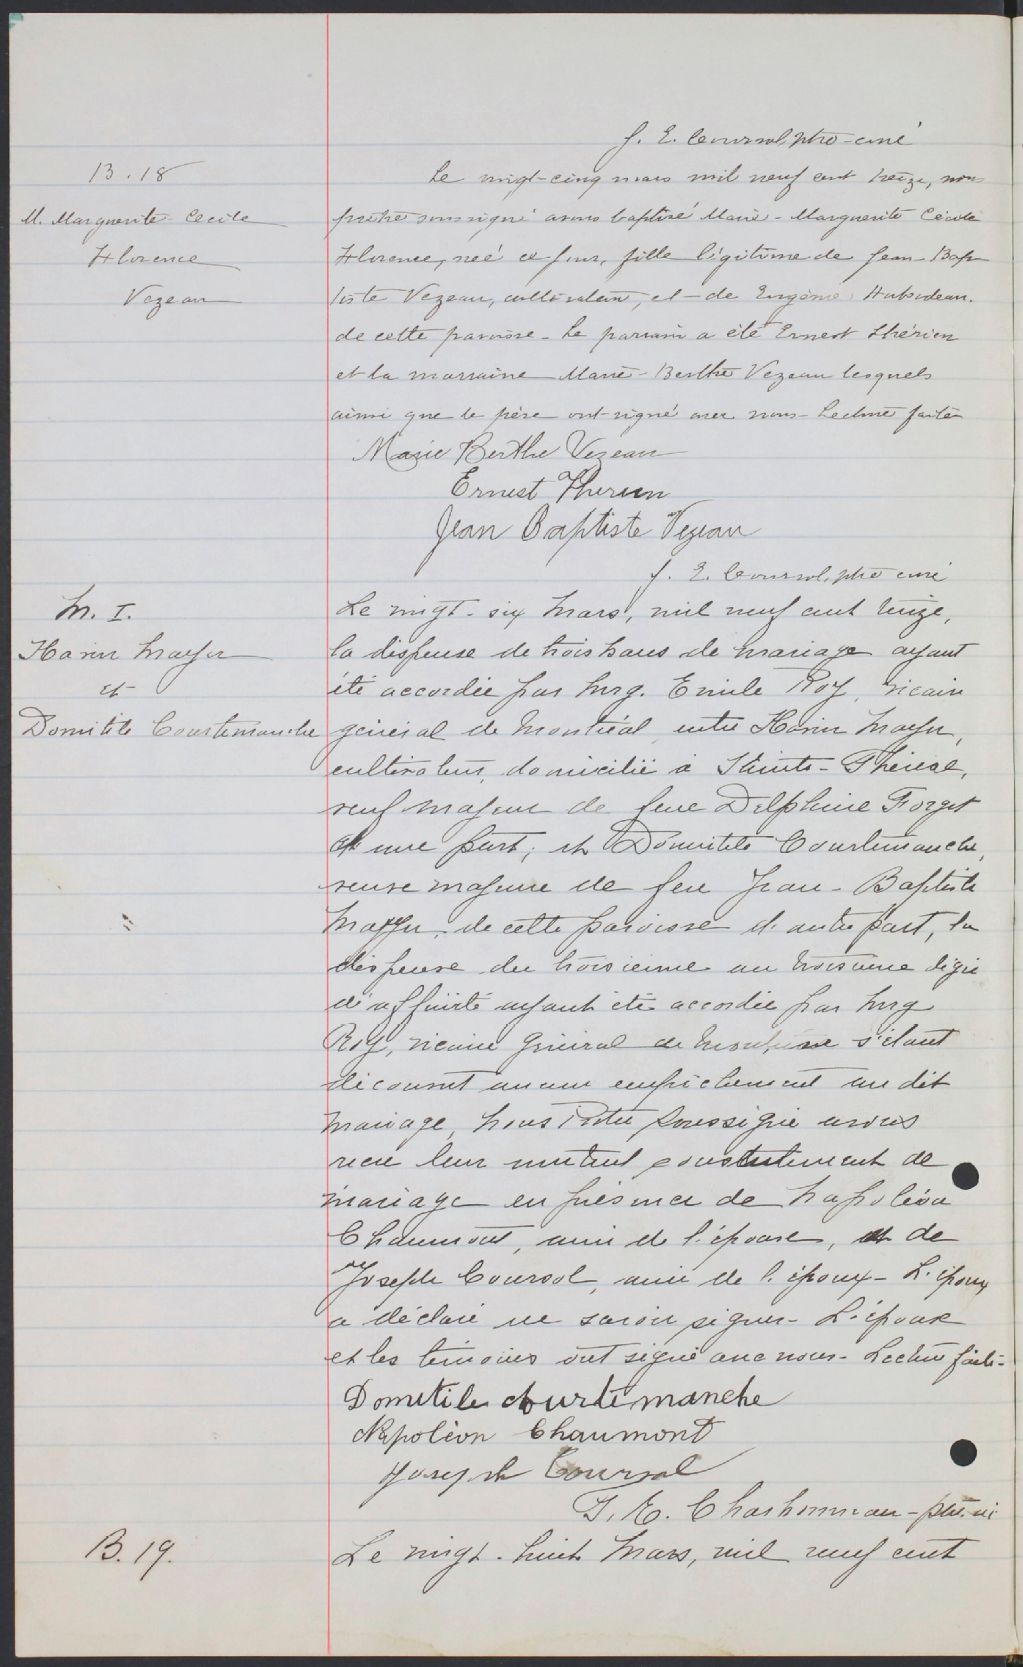 J. E. Coursol, ptre-curé
B. 18
M. Marguerite-Cecile
Florence
Vezeau
Le vingt-cinq mars mil neuf cent treize, nous
prêtre soussigné avons baptisé Marie-Marguerite Cécile
Florence, née ce jour, fille légitime de Jean Bap
tiste Vezeau, cultivateur, et de Eugénie Hubideau.
de cette paroisse - Le parrain a été Ernest Thérien
et la marraine Marie-Berthe Vezeau lesquels
ainsi que le père ont signé avec nous - Lecture faite
Marie Berthe Vezeau
Ernest Therien
Jean Baptiste Vezeau
J. E. Coursol, ptre curé
M. I.
et
Domitile Courtemanche
Le vingt-six Mars, mil neuf cent treize,
la dispense de trois bans de mariage ayant
été accordée par Mrg. Emile Roy, vicaire
général de Montréal, entre
cultivateur, domicilié à Sainte-Thérèse,
veuf majeur de feue Delphine Forget
d'une part; et Domitile Courtemanche,
veuve majeure de feu Jean-Baptiste
de cette paroisse d'autre part, la
dispense du troisième au troisième degré
d'affinité ayant été accordée par Mrg
Roy, vicaire Général de s'étant
découvert aucun empêchement au dit
mariage, Nous Prêtre soussigné avons
reçu leur mutuel consentement de
mariage en présence de Napoléon
Chaumont, ami de l'épouse, et de
Joseph Coursol, ami de l'époux - L'époux
a déclaré ne savoir signer - L'épouse
et les témoins ont signé avec nous - Lecture faite -
Domitile Courtemanche
Napoléon Chaumont
Joseph Coursol
J. E. Charbonneau - ptre. vic
B. 19.
Le vingt-huit Mars, mil neuf cent